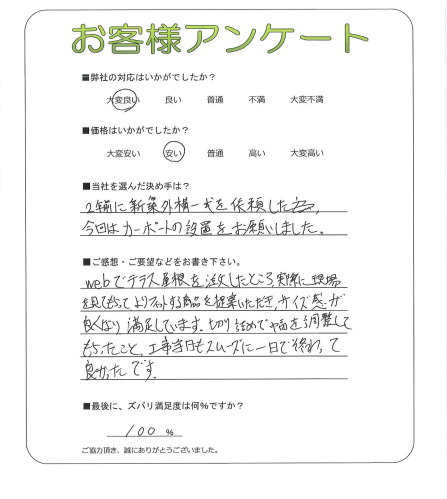 お客様アンケート
■弊社の対応はいかがでしたか？
大変良い 良い 普通 不満 大変不満
■価格はいかがでしたか？
大変安い 安い 普通 高い 大変高い
■当社を選んだ決め手は？
2年前に新築外構一式を依頼した為、
今回はカーポートの設置をお願いしました。
■ご感想・ご要望などをお書き下さい。
webでテラス屋根を注文したところ実際に現場
を見てもらってよりフィットする商品を提案いただき、サイズ感が
良くなり満足しています。切り詰めで巾を調整して
もらったこと、工事当日もスムーズに一日で終わって
良かったです。
■最後に、ズバリ満足度は何％ですか？
100 %
ご協力頂き、誠にありがとうございました。